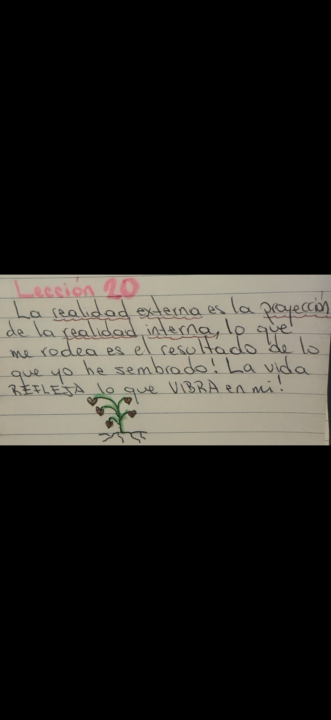 Lección 20
La realidad externa es la proyección
de la realidad interna, lo que
me rodea es el resultado de lo
que yo he sembrado! La vida
REFLEJA lo que VIBRA en mi!